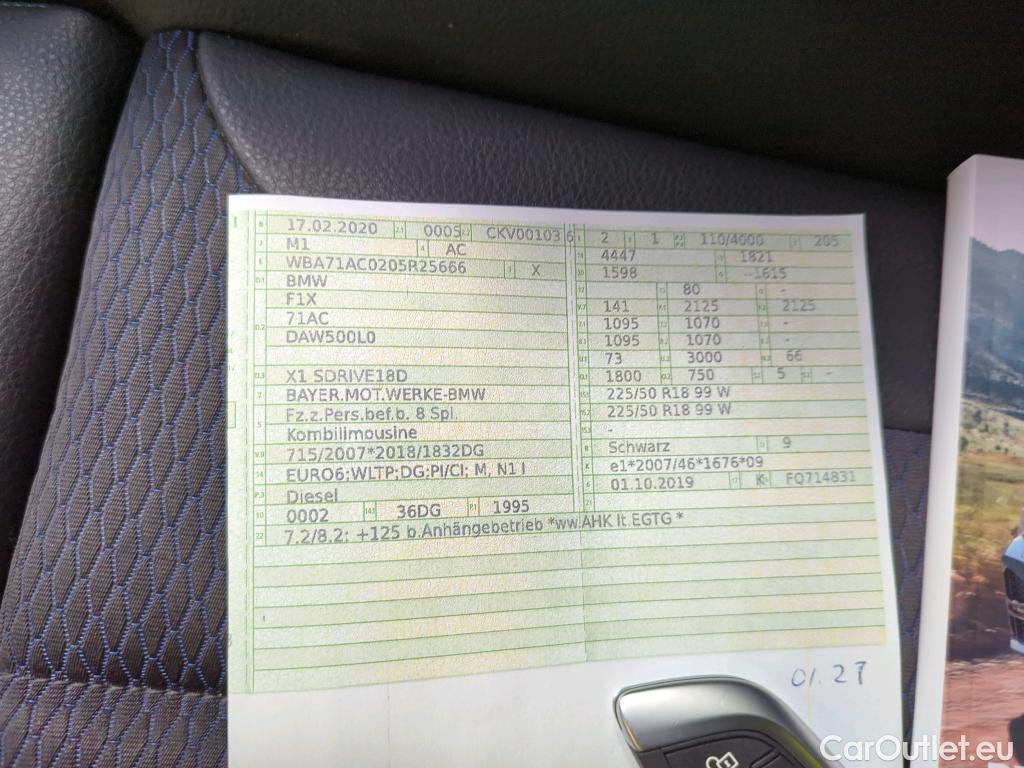 B 17.02.2020 2.1 0005 2.2 CKV00103 6
J M1 4 AC
E WBA71AC0205R25666 3 X
D.1 BMW
F1X
D.2 71AC
DAW500L0
D.3 X1 SDRIVE18D
2 BAYER.MOT.WERKE-BMW
5 Fz.z.Pers.bef.b. 8 Spl.
Kombilimousine
V.9 715/2007*2018/1832DG
14 EURO6;WLTP;DG;PI/CI; M, N1 I
P.3 Diesel
10 0002 14.1 36DG P.1 1995
22 7.2/8.2: +125 b.Anhängebetrieb *ww.AHK lt.EGTG *
L 2 9 1 110/4000 T 205
18 4447 19 1821
20 1598 G --1615
12 13 80 Q -
V.7 141 F.1 2125 F.2 2125
7.1 1095 7.2 1070 7.3 -
8.1 1095 8.2 1070 8.3 -
U.1 73 U.2 3000 U.3 66
O.1 1800 O.2 750 S.1 5 S.2 -
15.1 225/50 R18 99 W
15.2 225/50 R18 99 W
15.3 -
R Schwarz 11 9
K e1*2007/46*1676*09
6 01.10.2019 17 K 16 FQ714831
21
01.27
CarOutlet.eu